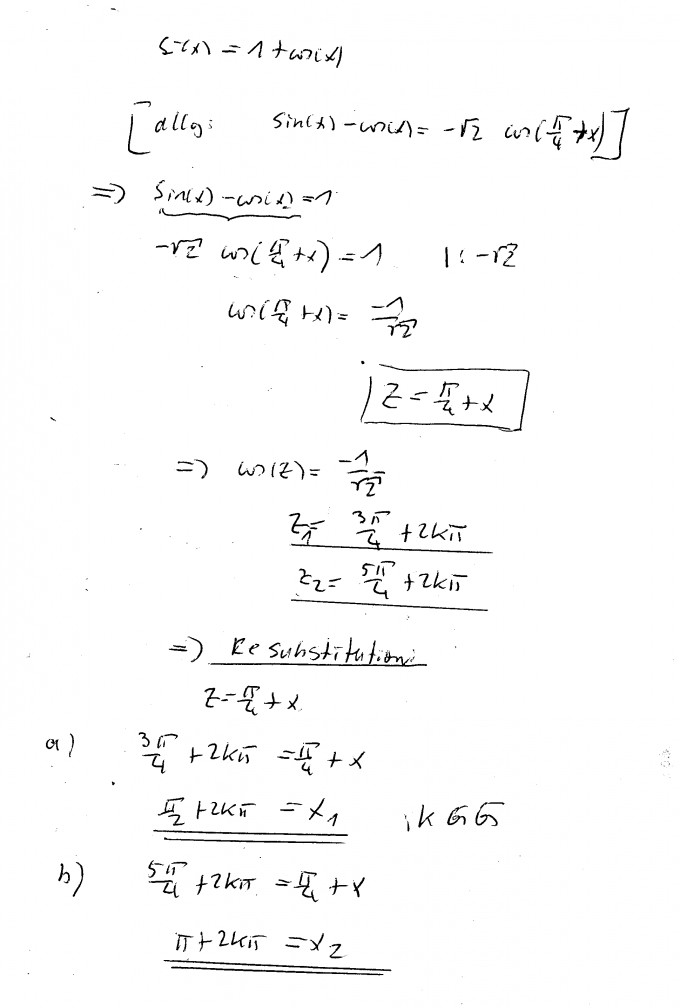 sin(x) = 1 + cos(x)
[allg: sin(x) - cos(x) = -√2 cos(π/4 + x)]
=> sin(x) - cos(x) = 1
-√2 cos(π/4 + x) = 1 |: -√2
cos(π/4 + x) = -1/√2
| z = π/4 + x
=> cos(z) = -1/√2
z₁ = 3π/4 + 2kπ
z₂ = 5π/4 + 2kπ
=> Resubstitution:
z = π/4 + x
a) 3π/4 + 2kπ = π/4 + x
π/2 + 2kπ = x₁ ; k ∈ G
b) 5π/4 + 2kπ = π/4 + x
π + 2kπ = x₂